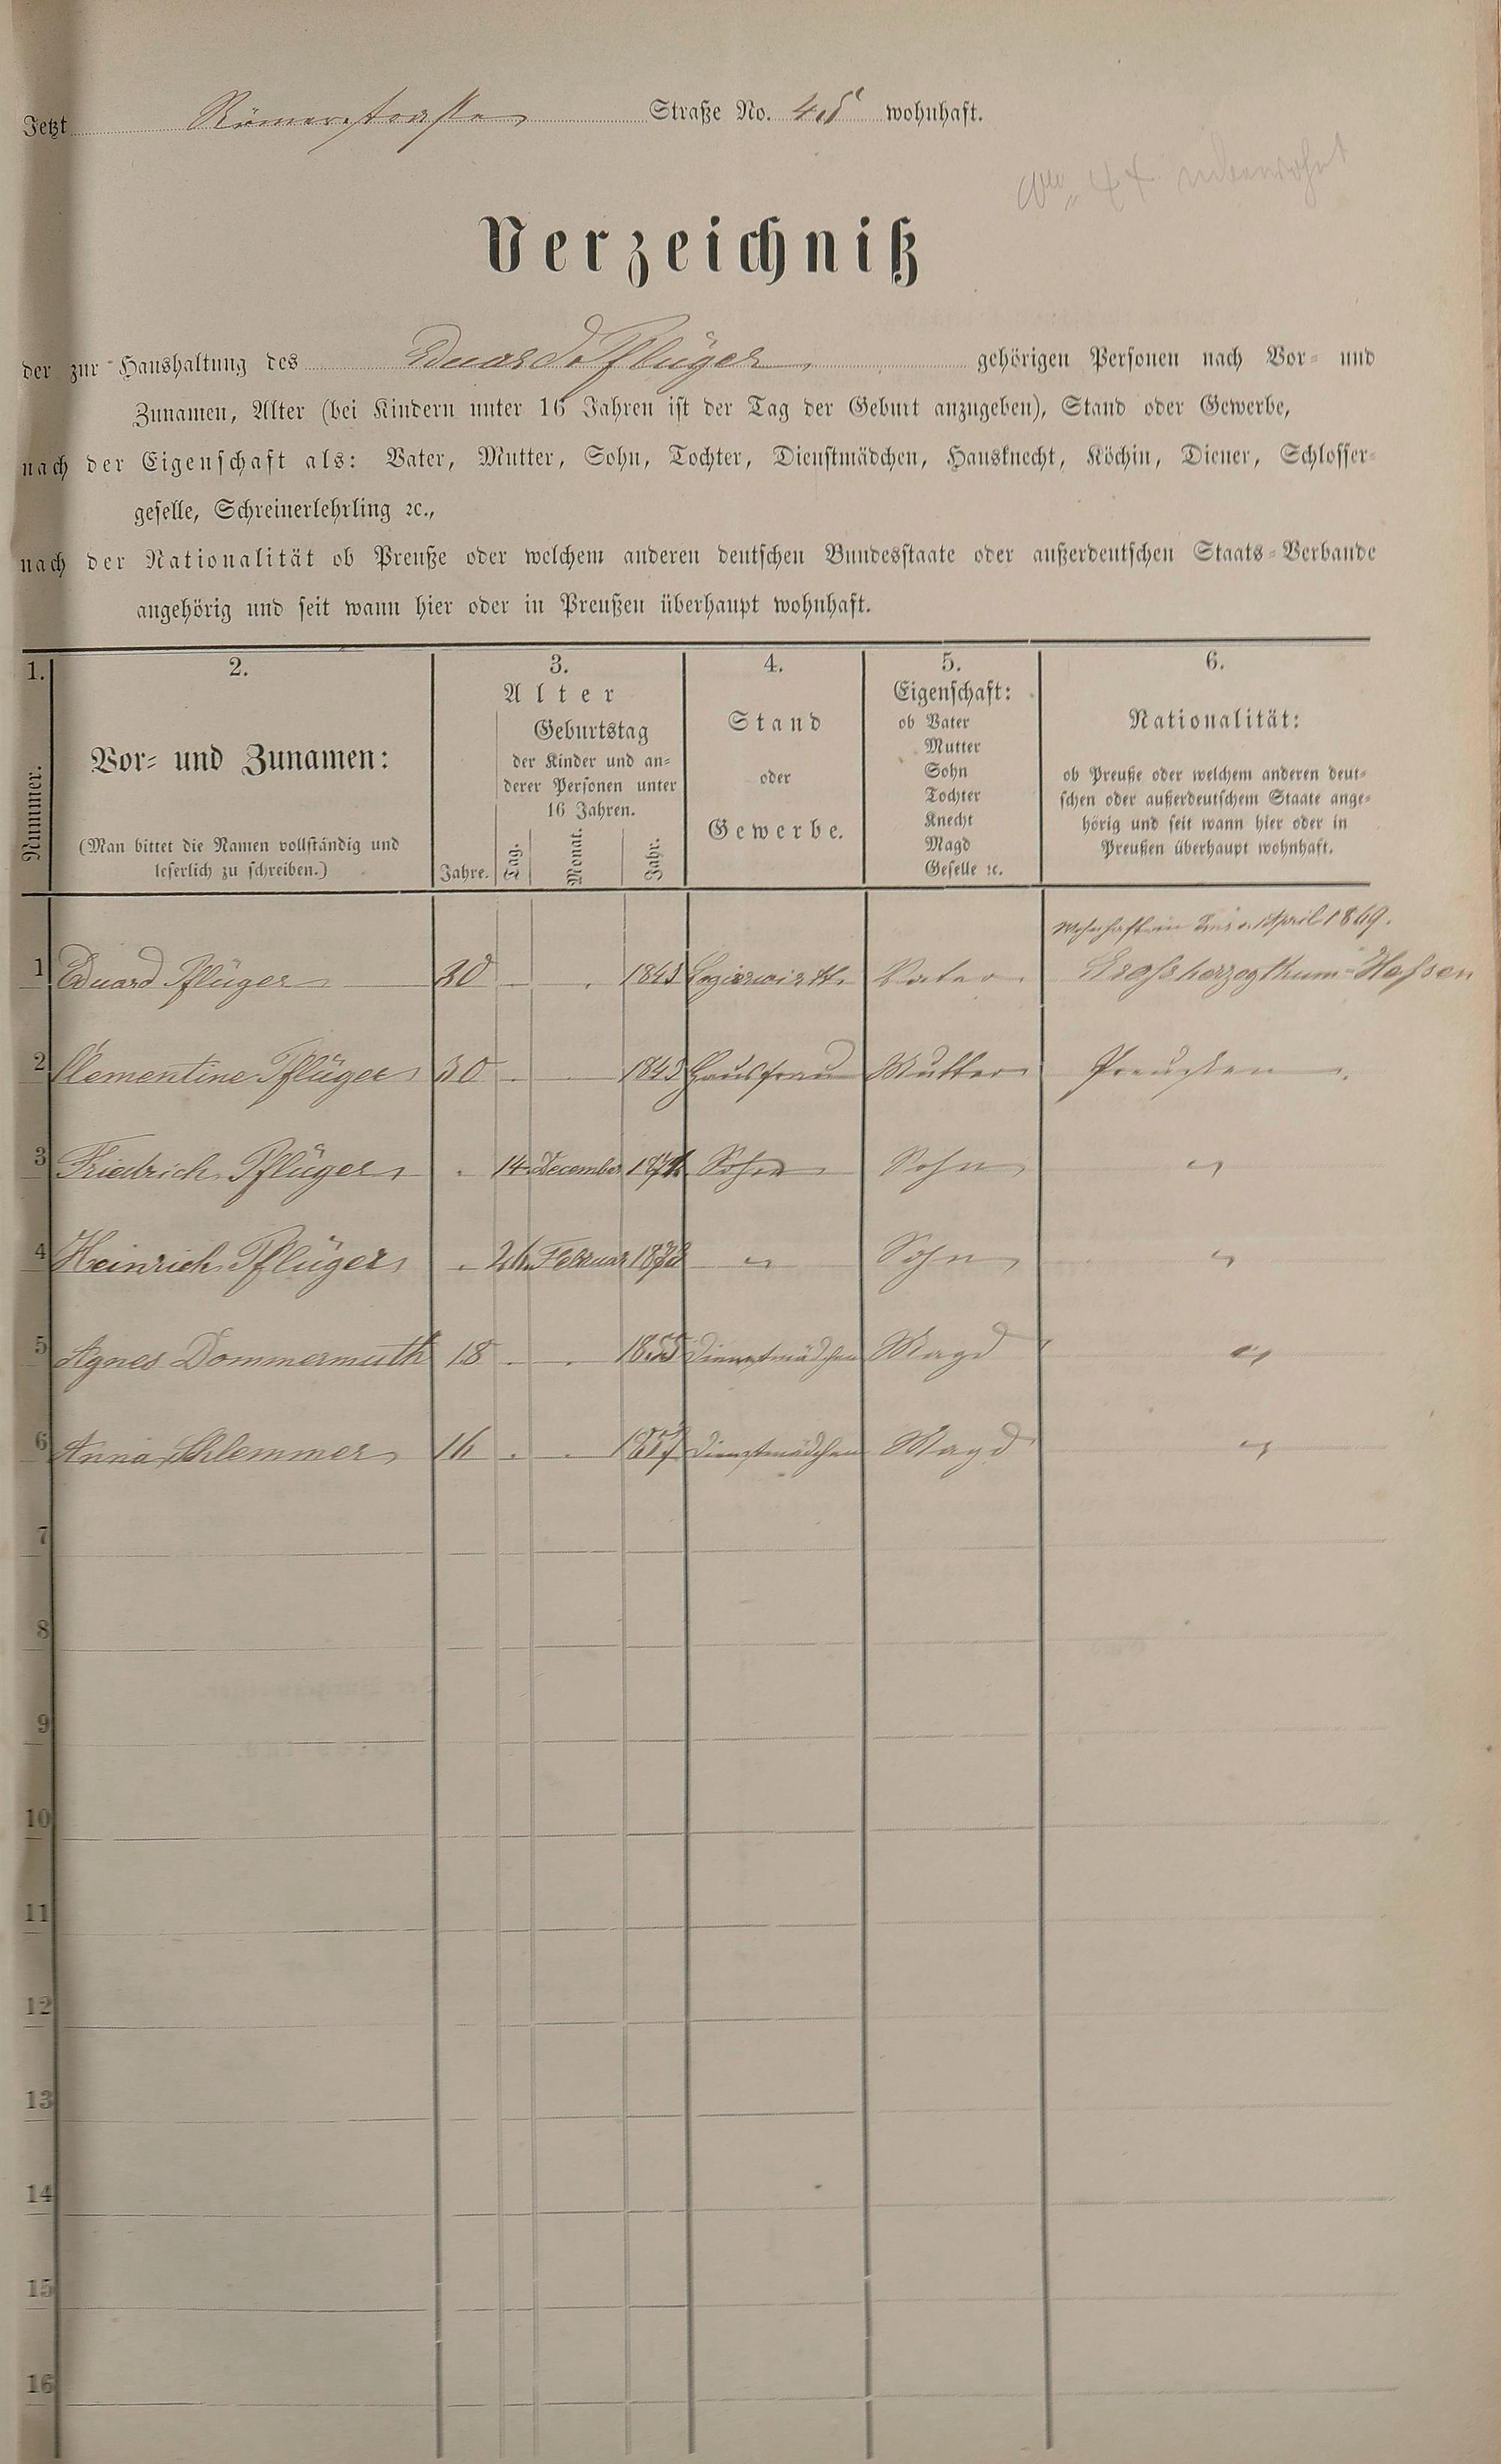 Jetzt Römerstrasse Straße No. 45 wohnhaft.
44 unbewohnt
Verzeichniß
der zur Haushaltung des Eduard Pflüger gehörigen Personen nach Vor- und
Zunamen, Alter (bei Kindern unter 16 Jahren ist der Tag der Geburt anzugeben), Stand oder Gewerbe,
nach der Eigenschaft als: Vater, Mutter, Sohn, Tochter, Dienstmädchen, Hausknecht, Köchin, Diener, Schlosser-
geselle, Schreinerlehrling ꝛc.,
nach der Nationalität ob Preuße oder welchem anderen deutschen Bundesstaate oder außerdeutschen Staats-Verbande
angehörig und seit wann hier oder in Preußen überhaupt wohnhaft.
1.
Nummer.
2.
Vor- und Zunamen:
(Man bittet die Namen vollständig und
leserlich zu schreiben.)
3.
Alter
Geburtstag
der Kinder und an-
derer Personen unter
16 Jahren.
Jahre. Tag. Monat. Jahr.
4.
Stand
oder
Gewerbe.
5.
Eigenschaft:
ob Vater
Mutter
Sohn
Tochter
Knecht
Magd
Geselle ꝛc.
6.
Nationalität:
ob Preuße oder welchem anderen deut-
schen oder außerdeutschem Staate ange-
hörig und seit wann hier oder in
Preußen überhaupt wohnhaft.
Wohnhaft April 1869.
1 Eduard Pflüger 30 1843 Vater Großherzogthum-Hessen
2 Clementine Pflüger 30 1843 Hausfrau Mutter Preußen
3 Friedrich Pflüger 14 December Sohn Sohn "
4 Heinrich Pflüger 26 Februar 1873 " Sohn "
5 Agnes Dommermuth 18 1855 Dienstmädchen Magd "
6 Anna Schlemmer 16 1857 Dienstmädchen Magd "
7
8
9
10
11
12
13
14
15
16